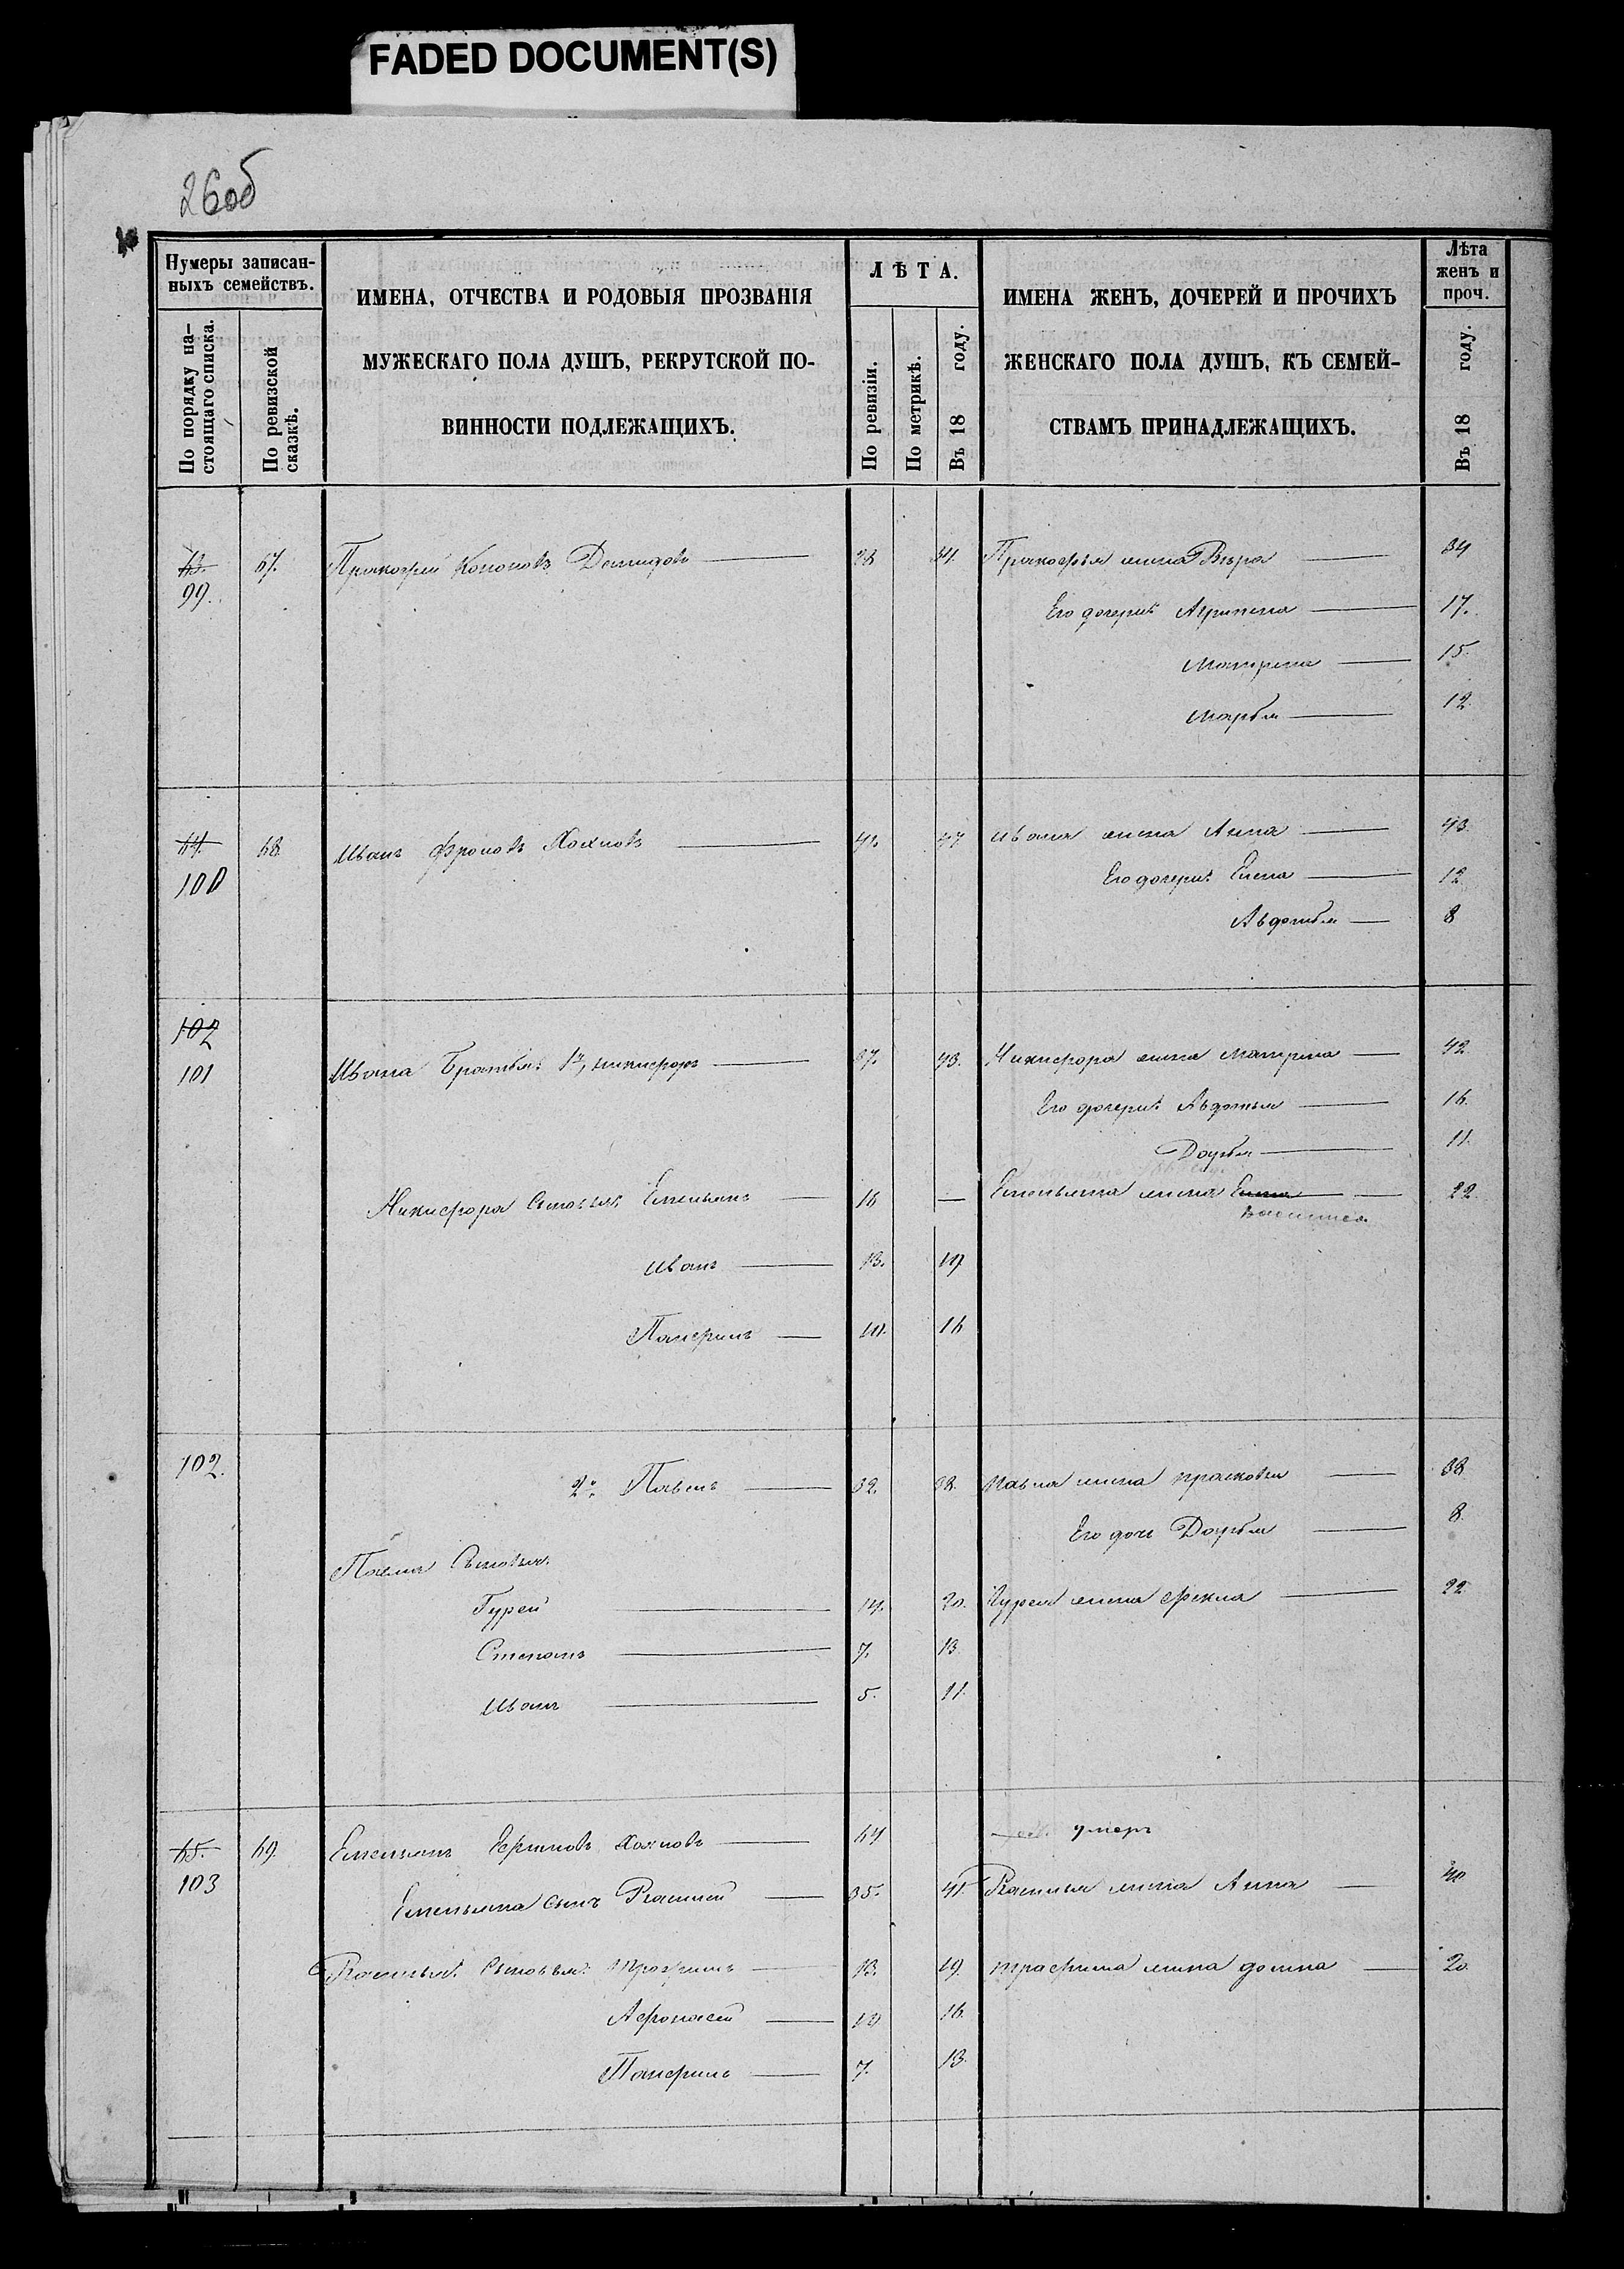 FADED DOCUMENT(S)
26об
Нумеры записан-
ныхъ семействъ.
По порядку на-
стоящаго списка.
По ревизской
сказкѣ.
ИМЕНА, ОТЧЕСТВА И РОДОВЫЯ ПРОЗВАНІЯ
МУЖЕСКАГО ПОЛА ДУШЪ, РЕКРУТСКОЙ ПО-
ВИННОСТИ ПОДЛЕЖАЩИХЪ.
ЛѢТА.
По ревизіи.
По метрикѣ.
Въ 18 году.
ИМЕНА ЖЕНЪ, ДОЧЕРЕЙ И ПРОЧИХЪ
ЖЕНСКАГО ПОЛА ДУШЪ, КЪ СЕМЕЙ-
СТВАМЪ ПРИНАДЛЕЖАЩИХЪ.
Лѣта
женъ и
проч.
Въ 18 году.
63. 67. Прокофей Кононовъ Демидовъ 28 34. Прокофья жена Вѣра 34
99.
Его дочери: Агрипена 17.
Матрена 15.
Марья 12.
64. 68. Иванъ Фроловъ 41. 47 Ивана жена Анна 43.
100
Его дочери: Елена 12
Авдотья 8
102
101 Ивана Братья: 1й, Никифоръ 37. 43. Никифора жена Матрена 42
Его дочери: Авдотья 16.
Дарья 11.
Никифора Сыновья: Емельянъ 16 — Емельяна жена 22.
Василиса
Иванъ 13. 19
Панфилъ 10. 16
102. 2й Павелъ 32. 38. Павла жена Прасковья 38
Его дочь Дарья 8.
Павла Сыновья:
Гурей 14. 20. Гурея жена Фекла 22
Степанъ 7. 13.
Иванъ 5. 11.
65. 69. Емельянъ 64 умеръ
103
Емельяна сынъ 35. 41. жена Анна 40
Сыновья: Трофимъ 13. 19. Трофима жена Домна 20.
Афонасей 10 16.
Панфилъ 7. 13.